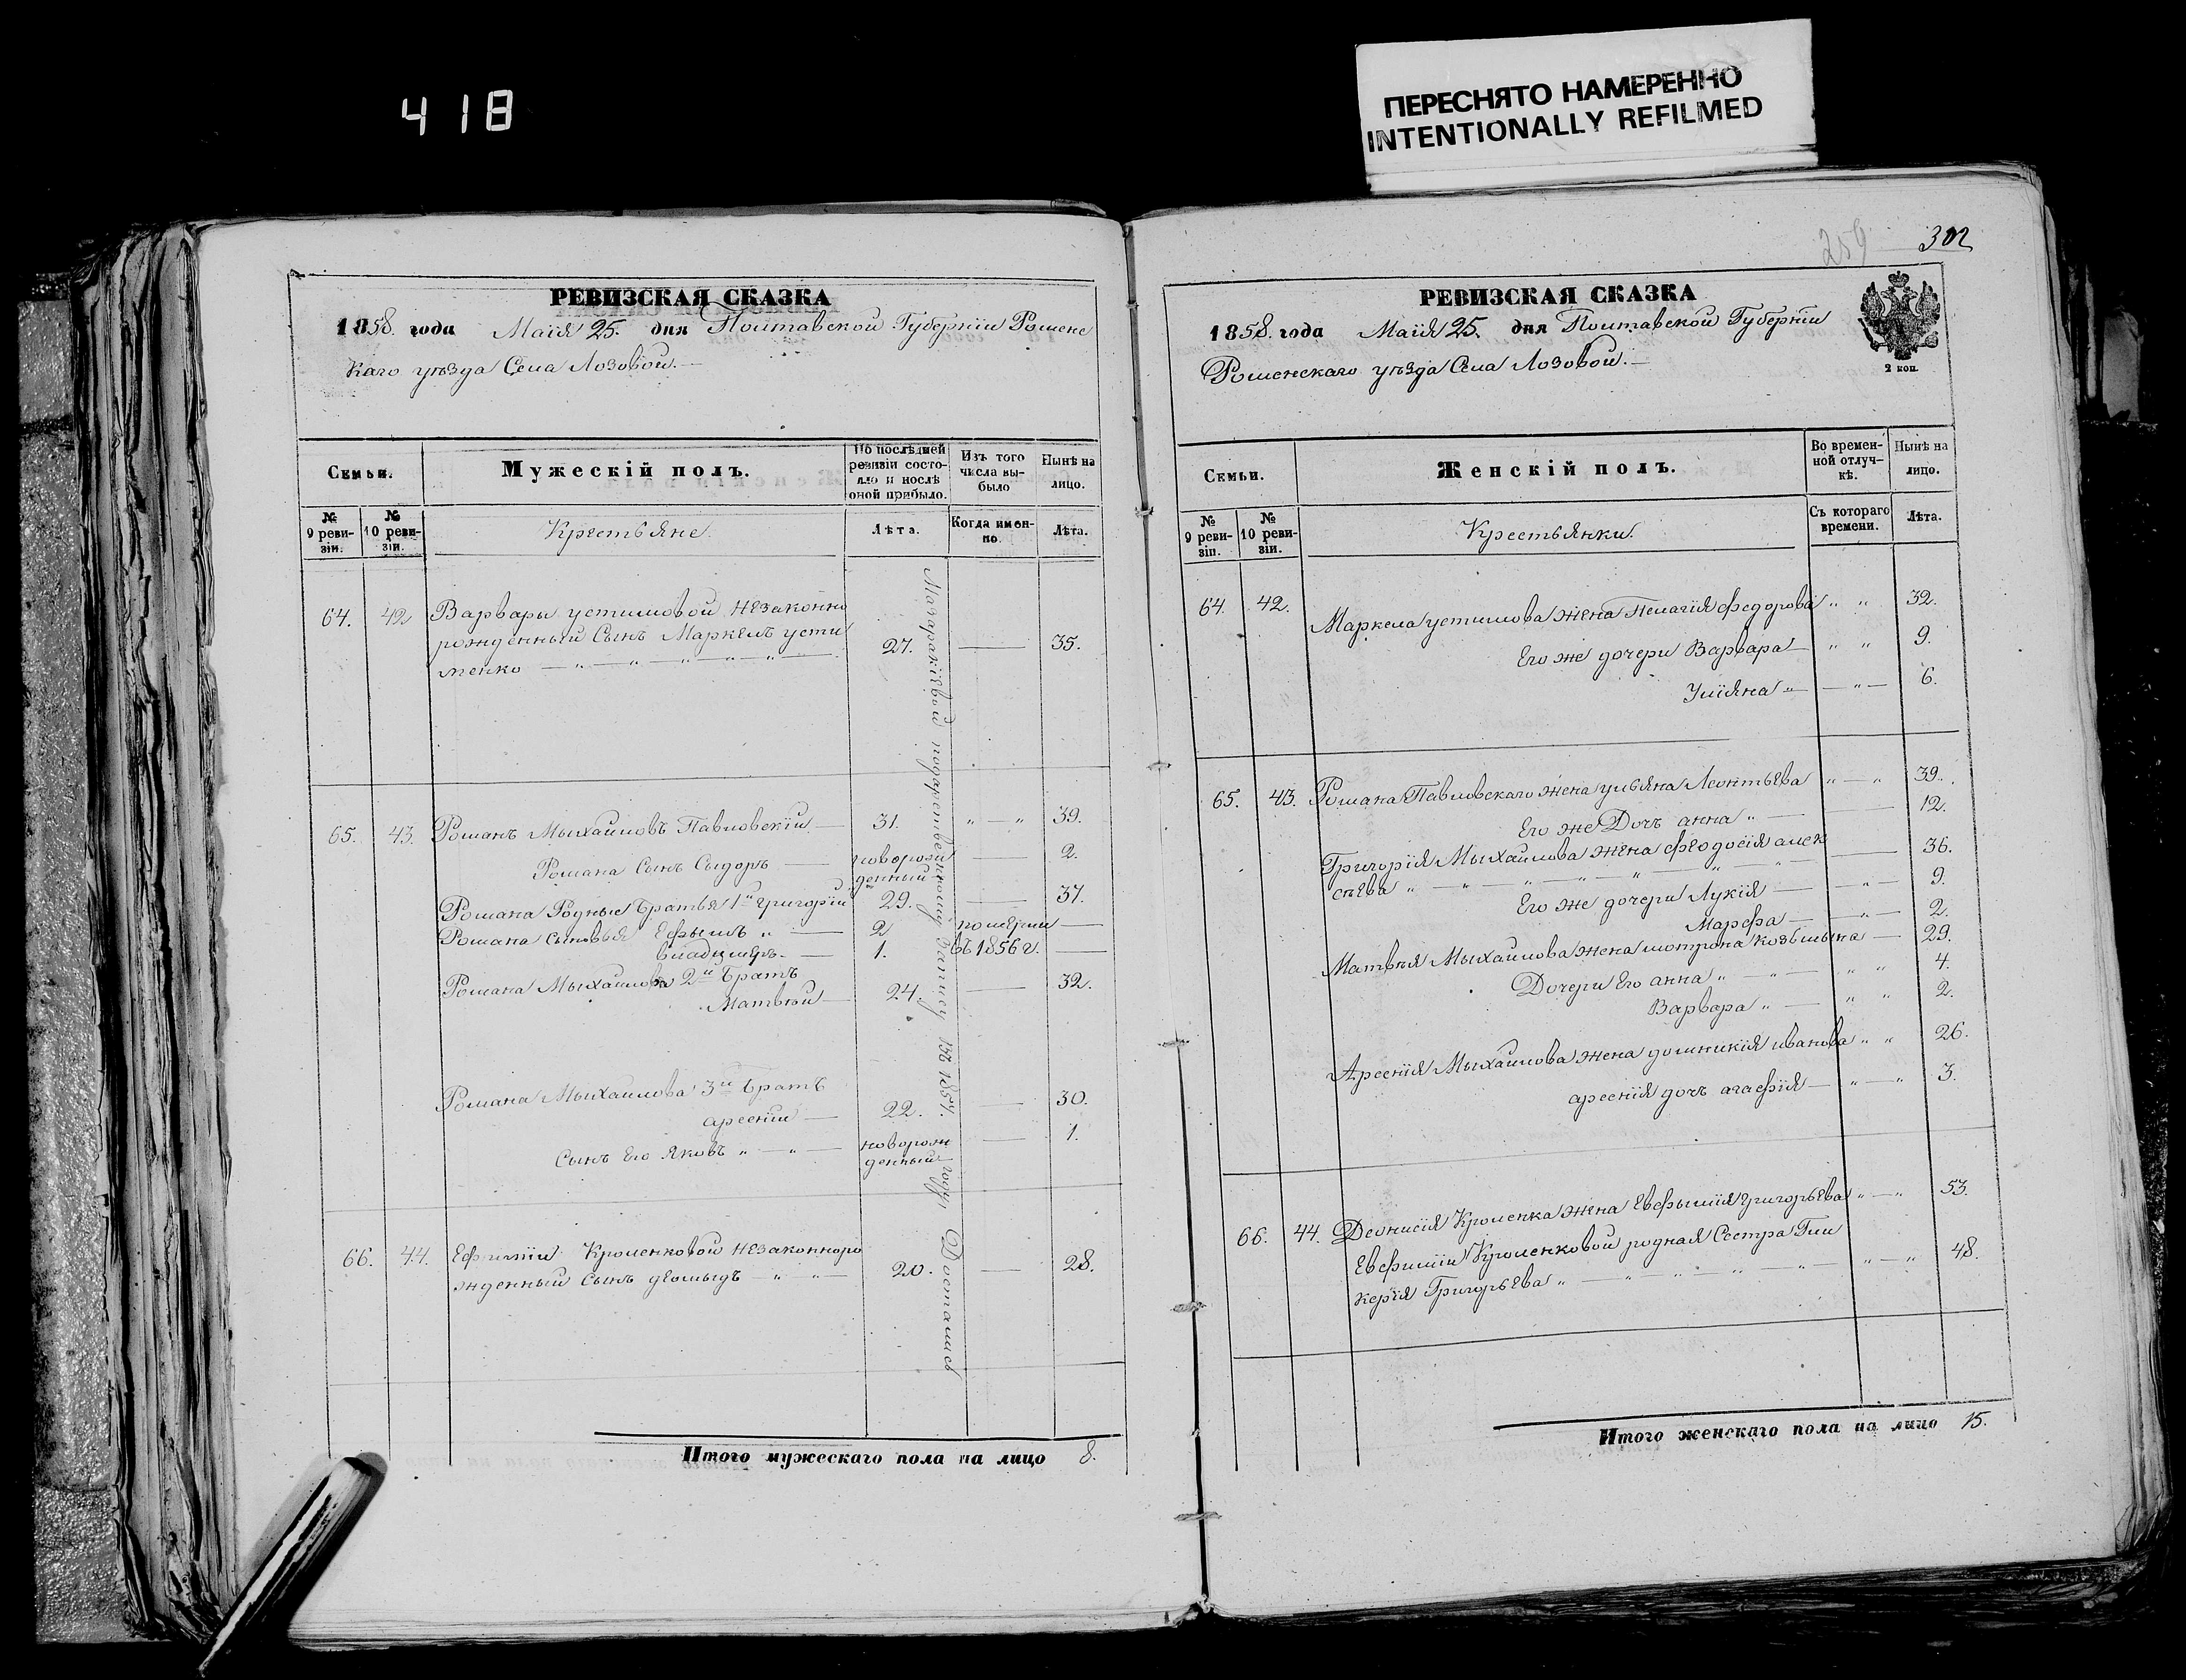 418
ПЕРЕСНЯТО НАМЕРЕННО
INTENTIONALLY REFILMED
РЕВИЗСКАЯ СКАЗКА
1858. года Маія 25. дня Полтавской Губерніи Роменс
каго уѣзда Села Лозовой.—
Семьи.
Мужескій полъ.
По послѣдней ревизіи состояло и послѣ оной прибыло.
Изъ того числа выбыло
Нынѣ на лицо.
№ 9 ревизіи.
№ 10 ревизіи.
Крестьяне.
Лѣта.
Когда именно.
Лѣта.
64. 42 Варвары устимовой незаконно
рожденный Сынъ Маркелъ усти
менко — „ — „ — „ — „ — „ — 27. — 35.
65. 43. Романъ Мыхайловъ Павловскій — 31. „ — „ 39.
Романа Сынъ Сыдоръ — новорож
денный — 2.
Романа Родные братья 1й григорій 29. — 37.
Романа сыновья Ефымъ „ — 2 померли —
владимиръ. — 1. въ 1856 г. —
Романа Мыхайлова 2й братъ
Матвѣй — 24. — 32.
Романа Мыхайлова 3й братъ
арсеній — 22. — 30.
Сынъ Его Яковъ „ — „ — новорож
денный — 1.
66. 44. Ефиміи Кроленковой незаконноро
жденный сынъ деомыдъ — „ — „ — 20. — 28.
подѣленному запису въ 1857. году Достались
Итого мужескаго пола на лицо 8.
259 302
РЕВИЗСКАЯ СКАЗКА
2 коп.
1858. года Маія 25. дня Полтавской Губерніи
Роменскаго уѣзда Села Лозовой.—
Семьи.
Женскій полъ.
Во временной отлучкѣ.
Нынѣ на лицо.
№ 9 ревизіи.
№ 10 ревизіи.
Крестьянки.
Съ котораго времени.
Лѣта.
64. 42. Маркела устимова жена Пелагія федорова „ „ 32.
Его же дочери Варвара — „ „ 9.
Уліяна „ — — „ — 6.
65. 43. Романа Павловскаго жена ульяна Леонтьева „ — „ 39.
Его же Дочъ анна „ — — 12.
Григорія Мыхайлова жена феодосія алек
сѣева „ — „ — „ — „ — „ — „ — 36.
Его же дочери Лукія — — „ — 9.
Марфа — — „ — 2.
Матвѣя Мыхайлова жена мотрона козьмына — 29.
Дочери Его анна „ — „ — „ „ 4.
Варвара „ — „ „ 2.
Арсенія Мыхайлова жена домникія иванова „ „ 26.
арсенія дочъ агафія — „ — „ 3.
66. 44. Деонисія Кроленка жена Евфымія григорьева „ — „ 53.
Евфиміи Кроленковой родная Сестра Гли
керія Григорьева „ — „ — „ — „ — „ „ — „ 48.
Итого женскаго пола на лицо 15.